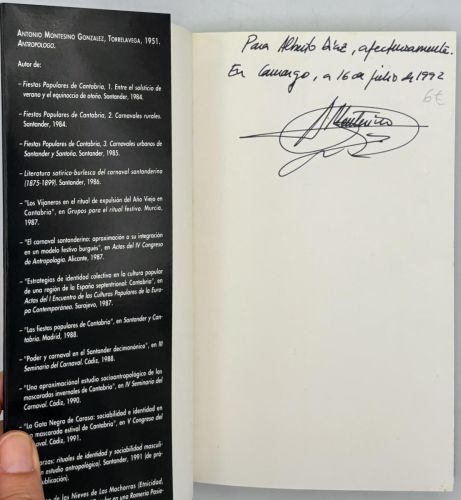 ANTONIO MONTESINO GONZALEZ, TORRELAVEGA, 1951.
ANTROPOLOGO.
Autor de:
– Fiestas Populares de Cantabria, 1. Entre el solsticio de
verano y el equinoccio de otoño. Santander, 1984.
– Fiestas Populares de Cantabria, 2. Carnavales rurales.
Santander, 1984.
– Fiestas Populares de Cantabria, 3. Carnavales urbanos de
Santander y Santoña. Santander, 1985.
– Literatura satírico-burlesca del carnaval santanderino
(1875-1899). Santander, 1986.
– "Los Vijaneros en el ritual de expulsión del Año Viejo en
Cantabria", en Grupos para el ritual festivo. Murcia,
1987.
– "El carnaval santanderino: aproximación a su integración
en un modelo festivo burgues", en Actas del IV Congreso
de Antropología. Alicante, 1987.
– "Estrategias de identidad colectiva en la cultura popular
de una región de la España septentrional: Cantabria", en
Actas del I Encuentro de las Culturas Populares de la Euro-
pa Contemporánea. Sarajevo, 1987.
– "Las fiestas populares de Cantabria", en Santander y Can-
tabria. Madrid, 1988.
– "Poder y carnaval en el Santander decimonónico", en III
Seminario del Carnaval. Cádiz, 1988.
– "Una aproximaciónal estudio socioantropológico de las
mascaradas invernales de Cantabria", en IV Seminario del
Carnaval. Cádiz, 1990.
– "La Gata Negra de Carasa: sociabilidad e identidad en
mascarada estival de Cantabria", en V Congreso del
Cádiz, 1991.
rzas: rituales de identidad y sociabilidad masculi-
n estudio antropológico). Santander, 1991 (de pró-
publicación).
de las Nieves de Las Machorras (Etnicidad,
Popular en una Romería Pasie-
Para Alberto Díaz, afectuosamente.
En Camargo, a 16 de julio de 1992
6€
AMontesino